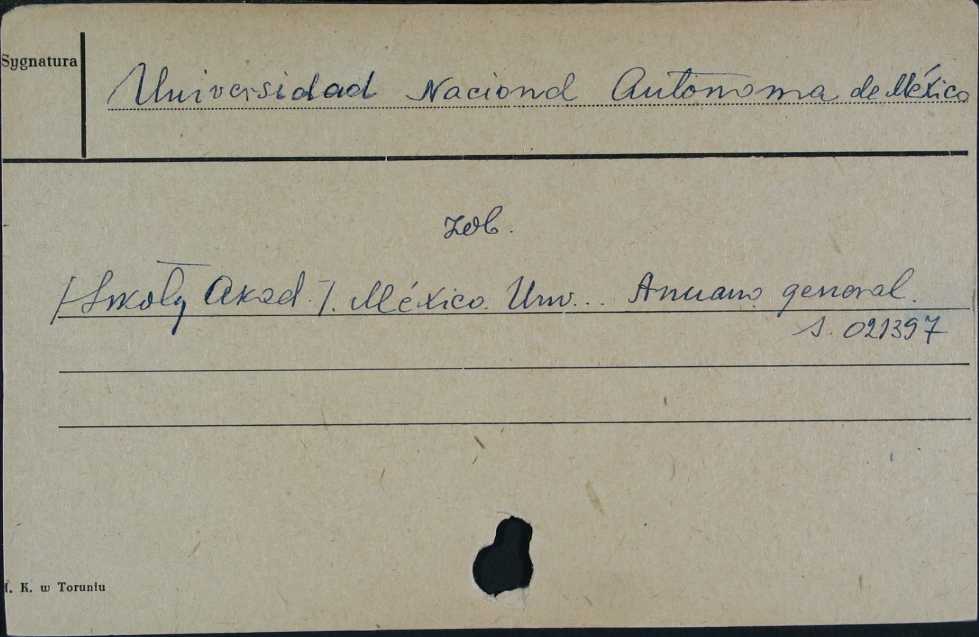 Sygnatura
Universidad Nacional Autónoma de México
zob.
[Szkoły Akad.]. México. Univ... Anuario general.
S. 021397
K. w Toruniu